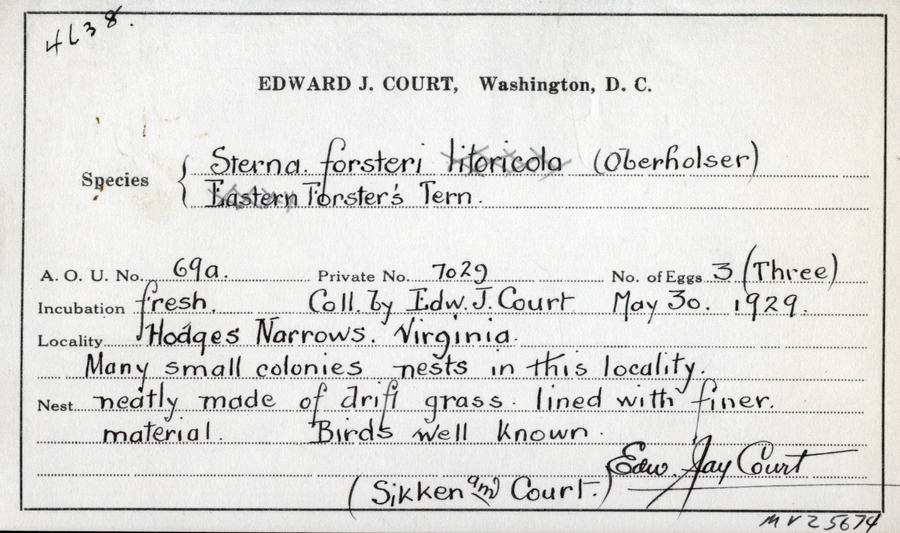 4638.
EDWARD J. COURT, Washington, D. C.
Species { Sterna. forsteri litoricola (Oberholser)
Eastern Forster's Tern.
A. O. U. No. 69a. Private No. 7029 No. of Eggs 3 (Three)
Incubation fresh. Coll. by Edw. J. Court May 30. 1929.
Locality Hodges Narrows. Virginia.
Many small colonies nests in this locality.
Nest neatly made of drift grass. lined with finer.
material. Birds well known.
Edw. Jay Court
(Sikken and Court.)
MVZ 5674